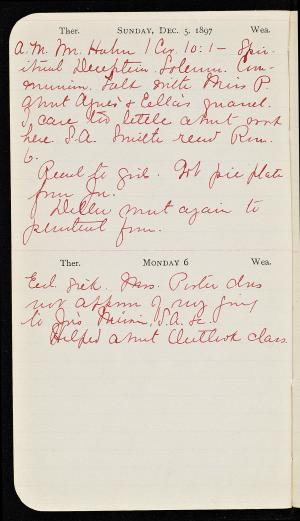 Ther. SUNDAY, DEC. 5, 1897 Wea.
A.M. Mr. Hahn 1 Cor. 10:1 - Spir-
itual Deception. Solemn. Com-
munion. Talk with Miss P.
about Agnes & Eella's quarrel.
I care too little about work
here. S.A. Smith read Rom.
6.
Recd to girls. Got pie plate
from Jn.
Della went again to
penitent form.
Ther. MONDAY 6 Wea.
Eccl. Sick. Mrs. Porter does
not approve of my going
to Jns S.A. &c.
Helped about Outlook class.